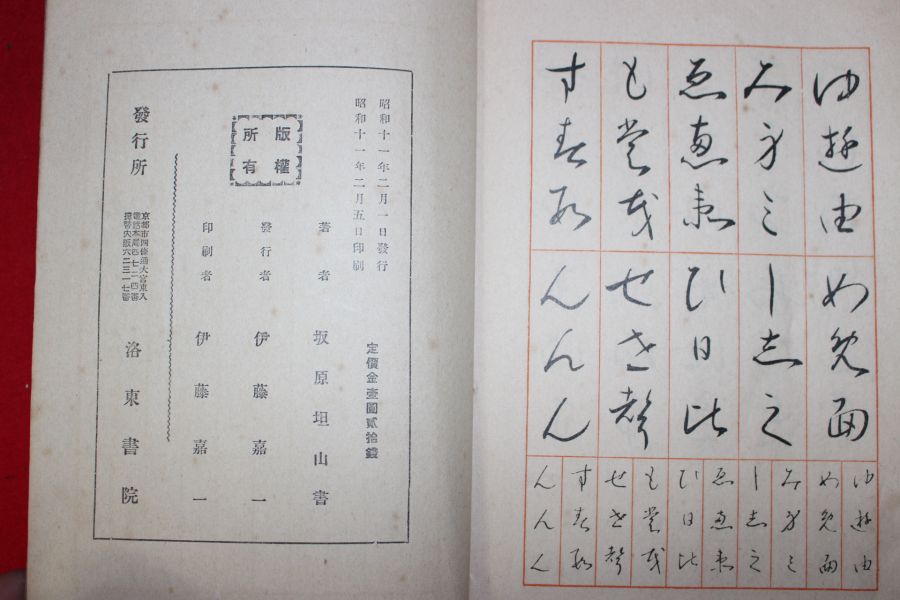 ゆ遊由
み身三
ゑ恵衛
も裳茂
す春
め免面
し志之
ひ日比
せ世聲
んんん
ゆ遊由
め免面
み身三
し志之
ゑ恵衛
ひ日比
も裳茂
せ世聲
す春
んんん
昭和十一年二月一日發行
昭和十一年二月五日印刷
定價金壹圓貳拾錢
版權
所有
著者 坂原坦山書
發行者 伊藤嘉一
印刷者 伊藤嘉一
發行所
京都市四條通大宮東入
電話本局四七二四番
振替大阪六二三一七番
洛東書院